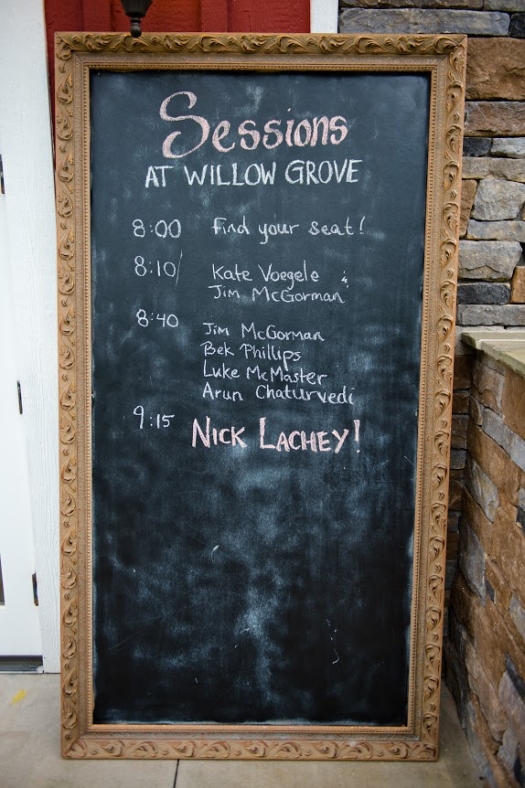 Sessions
AT WILLOW GROVE
8:00 Find your seat!
8:10 Kate Voegele &
Jim McGorman
8:40 Jim McGorman
Bek Phillips
Luke McMaster
Arun Chaturvedi
9:15 NICK LACHEY!